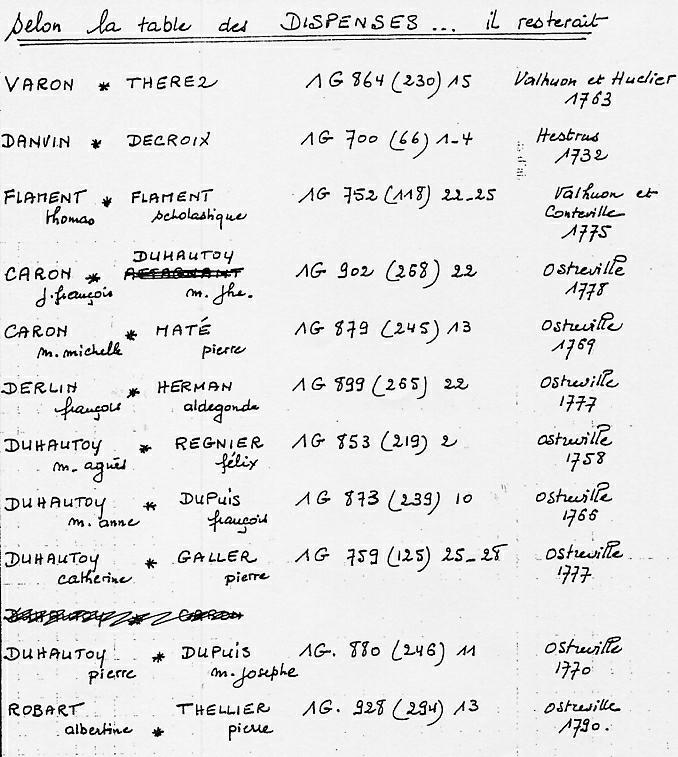 Selon la table des DISPENSES ... il resterait
VARON * THEREZ 1G 864 (230) 15 Valhuon et Huclier
1763
DANVIN * DECROIX 1G 700 (66) 1-4 Hestrus
1732
FLAMENT * FLAMENT 1G 752 (118) 22-25 Valhuon et
thomas scholastique Conteville
1775
DUHAUTOY
CARON * 1G 902 (268) 22 Ostreville
j.françois m. jhe. 1778
CARON * MATÉ 1G 879 (245) 13 Ostreville
m. michelle pierre 1769
DERLIN * HERMAN 1G 899 (265) 22 Ostreville
françois aldegonde 1777
DUHAUTOY * REGNIER 1G 853 (219) 2 Ostreville
m. agnès félix 1758
DUHAUTOY * DUPUIS 1G 873 (239) 10 Ostreville
m. anne françois 1766
DUHAUTOY * GALLER 1G 759 (125) 25-28 Ostreville
catherine pierre 1777
DUHAUTOY * CARON
DUHAUTOY * DUPUIS 1G. 880 (246) 11 Ostreville
pierre m. josephe 1770
ROBART THELLIER 1G. 928 (294) 13 Ostreville
albertine * pierre 1790.